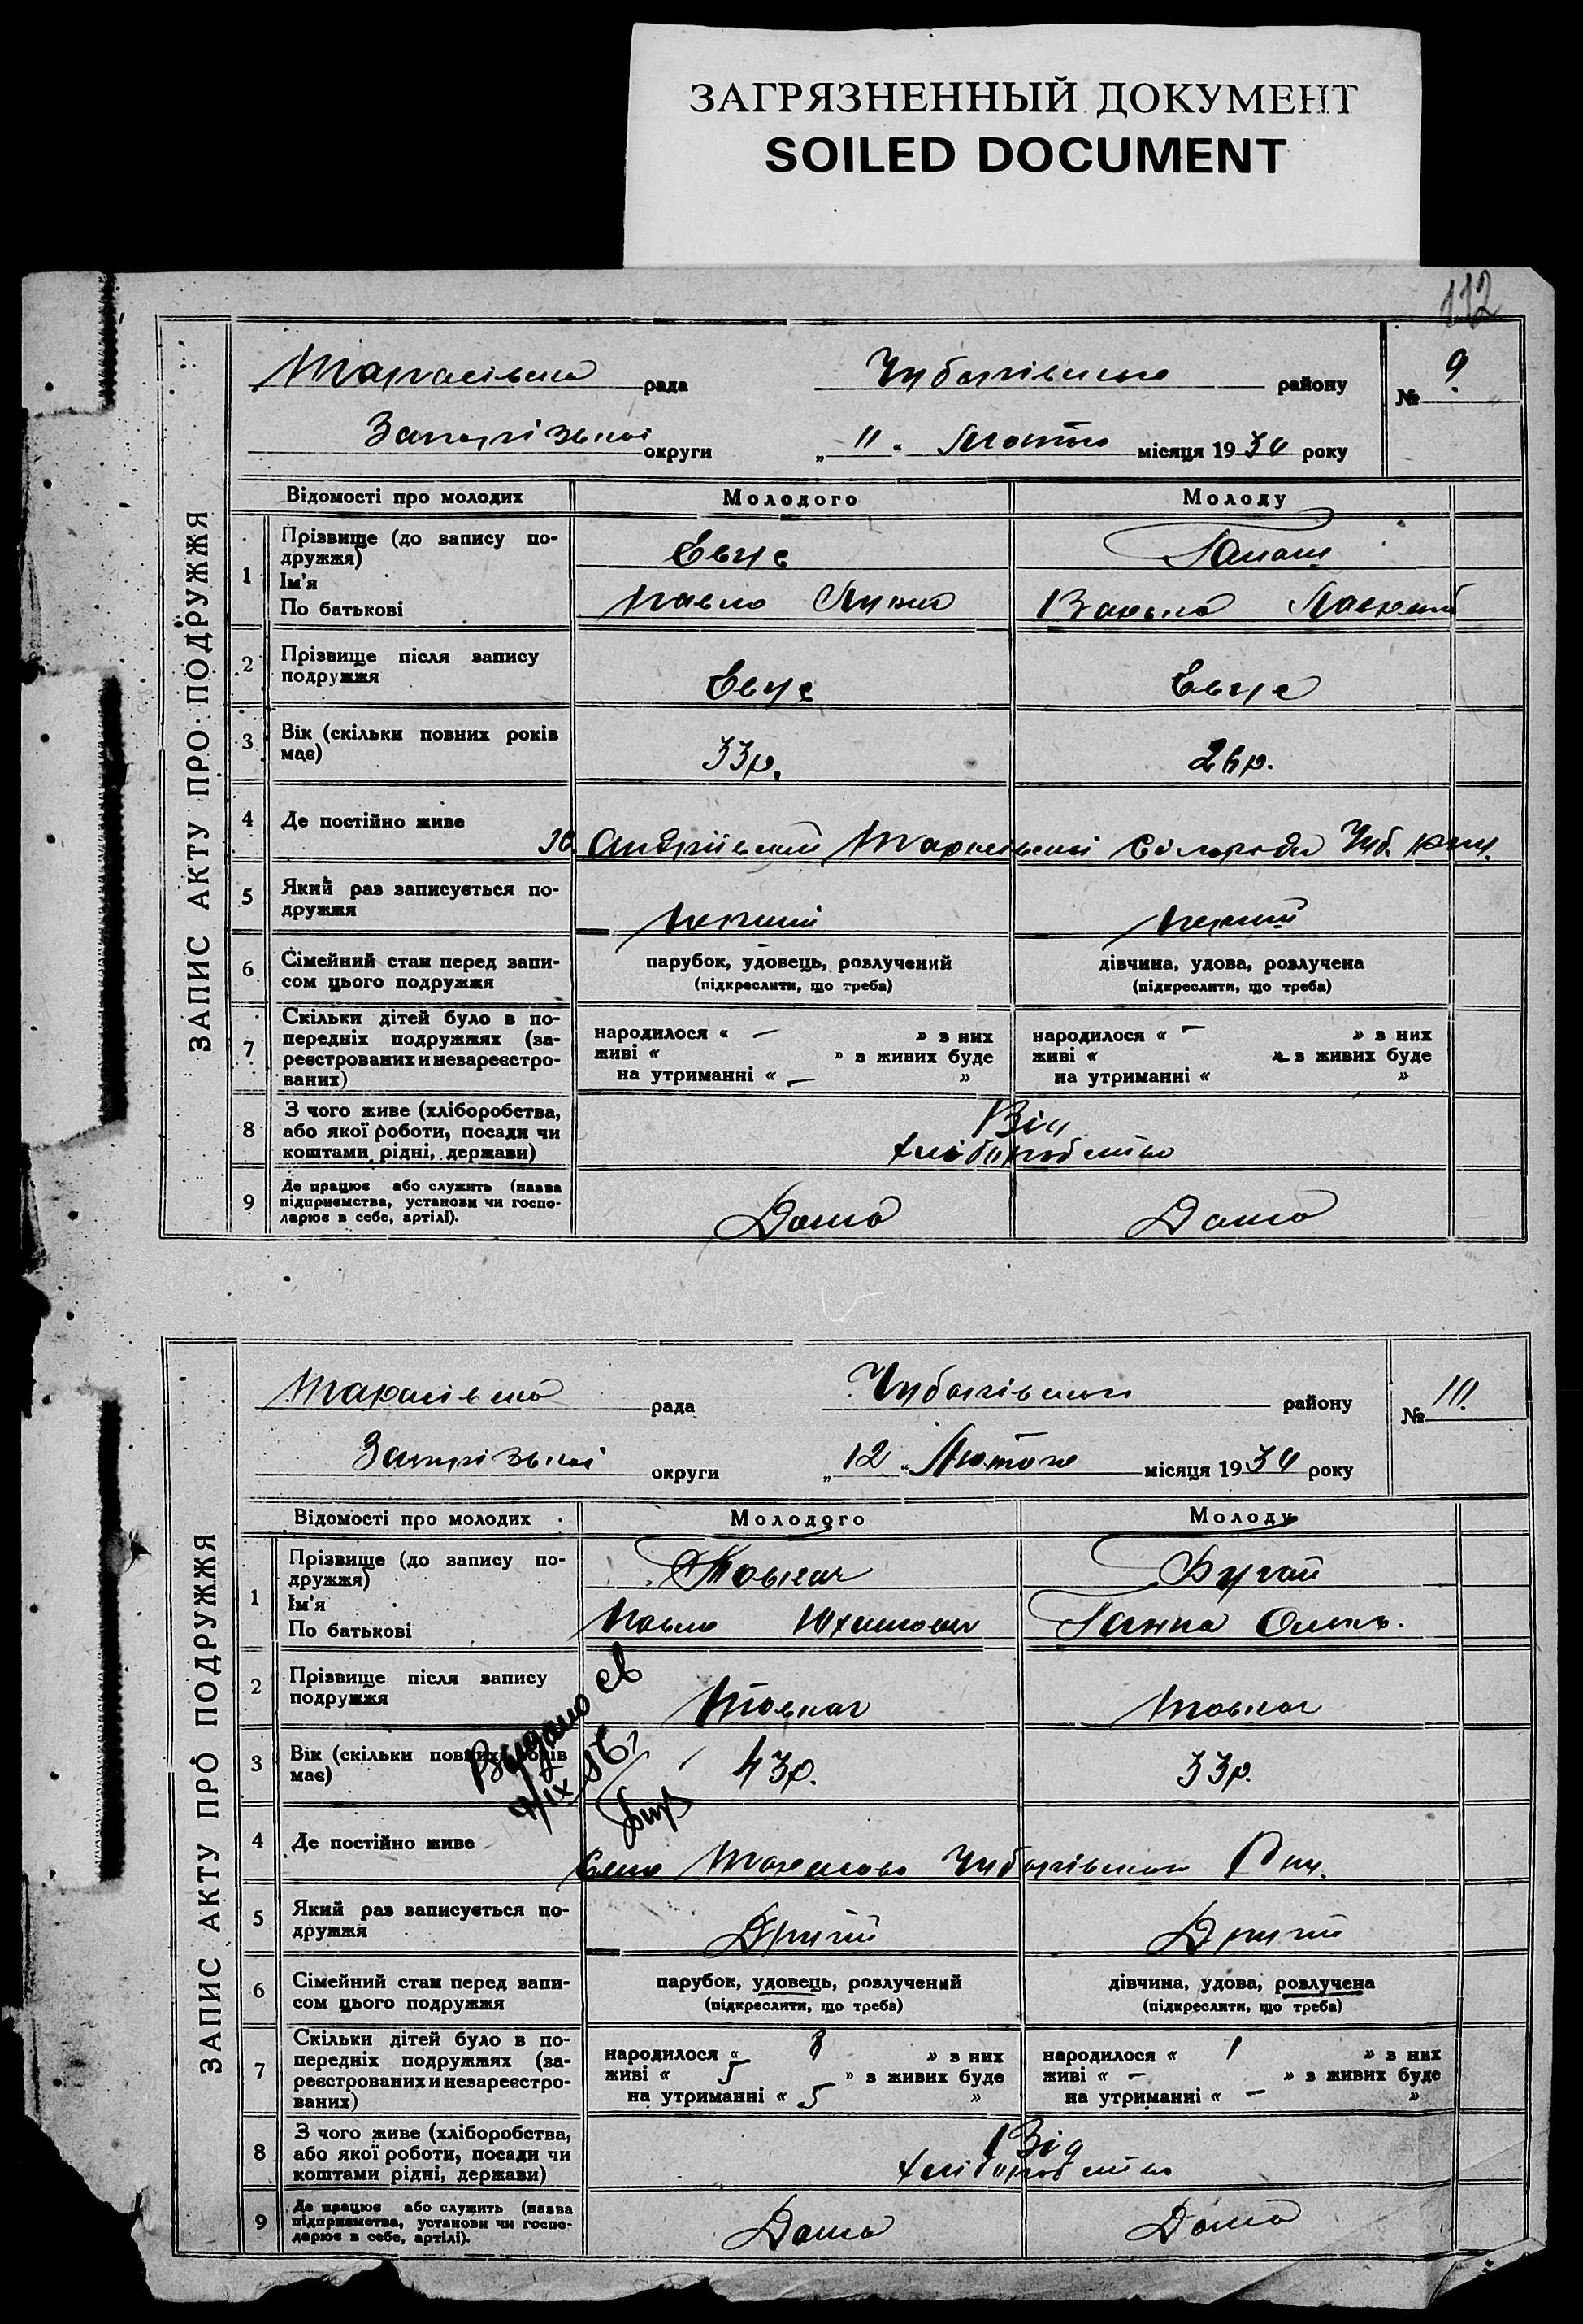 ЗАГРЯЗНЕННЫЙ ДОКУМЕНТ
SOILED DOCUMENT
112
ЗАПИС АКТУ ПРО ПОДРУЖЖЯ
Тарасівська рада Чубарівського району № 9
Запорізької округи „11“ Лютого місяця 1930 року
Відомості про молодих Молодого Молоду
1 Прізвище (до запису по-
дружжя)
Ім'я
По батькові
Евце
Павло
2 Прізвище після запису
подружжя
Евце Евце
3 Вік (скільки повних років
має)
33р. 26р.
4 Де постійно живе
х. Андріївський Тарасівської Сільради Чуб. рну.
5 Який раз записується по-
дружжя
Перший Перший
6 Сімейний стан перед запи-
сом цього подружжя
парубок, удовець, розлучений дівчина, удова, розлучена
(підкреслити, що треба) (підкреслити, що треба)
7 Скільки дітей було в по-
передніх подружжях (за-
реєстрованих и незареєстро-
ваних)
народилося « — » в них народилося « — » в них
живі « » в живих буде живі « » в живих буде
на утриманні « — » на утриманні « »
8 З чого живе (хліборобства,
або якої роботи, посади чи
коштами рідні, держави)
Від
хліборобства
9 Де працює або служить (назва
підприємства, установи чи госпо-
дарює в себе, артілі).
Дома Дома
ЗАПИС АКТУ ПРО ПОДРУЖЖЯ
Тарасівська рада Чубарівського району № 10
Запорізької округи „12“ Лютого місяця 1930 року
Відомості про молодих Молодого Молоду
1 Прізвище (до запису по-
дружжя)
Ім'я
По батькові
Товкач Бугай
Павло Юхимович Ганна Олек.
2 Прізвище після запису
подружжя
Товкач Товкач
3 Вік (скільки повних років
має)
43р. 33р.
Выдано св
4 Де постійно живе
Село Тарасівка Чубарівського Рну.
5 Який раз записується по-
дружжя
Другий Другий
6 Сімейний стан перед запи-
сом цього подружжя
парубок, удовець, розлучений дівчина, удова, розлучена
(підкреслити, що треба) (підкреслити, що треба)
7 Скільки дітей було в по-
передніх подружжях (за-
реєстрованих и незареєстро-
ваних)
народилося « 8 » в них народилося « 1 » в них
живі « 5 » в живих буде живі « — » в живих буде
на утриманні « 5 » на утриманні « — »
8 З чого живе (хліборобства,
або якої роботи, посади чи
коштами рідні, держави)
Від
хліборобства
9 Де працює або служить (назва
підприємства, установи чи госпо-
дарює в себе, артілі).
Дома Дома